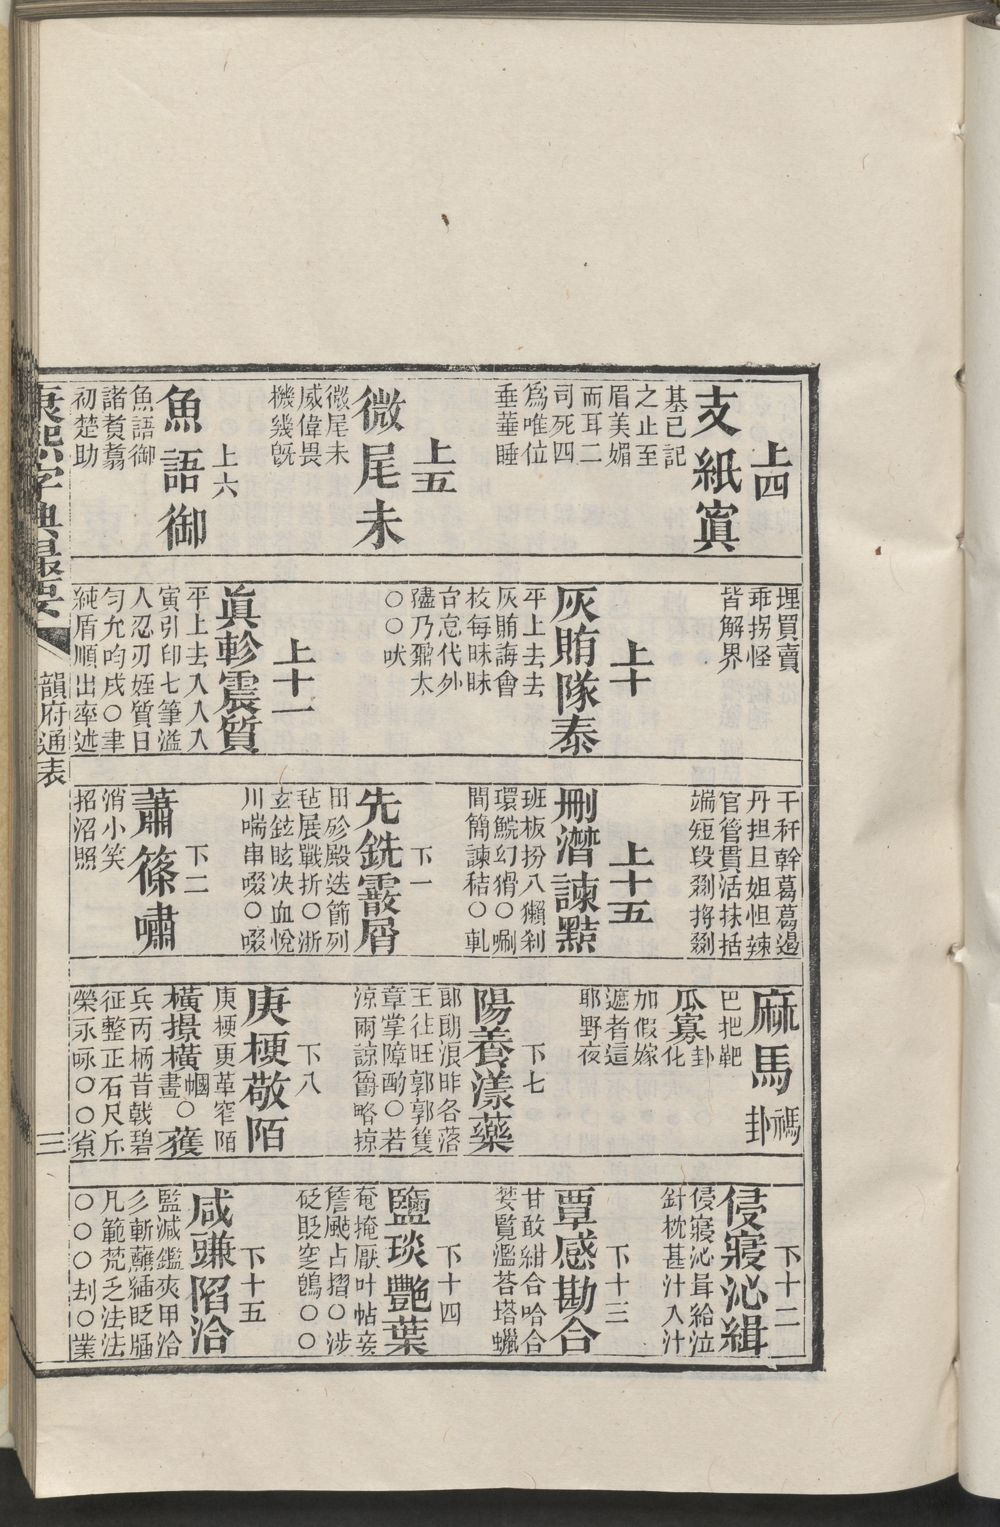 上四
支紙寘
基己記
之止至
眉美媚
而耳二
司死四
爲唯位
垂菙睡
上五
微尾未
微尾未
威偉畏
機幾旣
上六
魚語御
魚語御
諸煑翥
初楚助
埋買賣
乖拐怪
皆解界
上十
灰賄隊泰
平上去去
灰賄誨會
枚每昧眛
台怠代外
㺀乃鼐太
○○吠
上十一
眞軫震質
平上去入入入
寅引印七筆溢
人忍刃姪質日
勻允呁戌○聿
純盾順出率述
干秆幹葛葛遏
丹担旦妲怛辣
官管貫活抹括
端短段剟捋剟
上十五
刪潸諫黠
班板扮八獺刹
環鯇幻猾○唰
間簡諫秸○軋
下一
先銑霰屑
田㐱殿迭節列
毡展戰折○浙
玄鉉眩決血悅
川喘串啜○啜
下二
蕭篠嘯
消小笑
招沼照
麻馬禡卦
巴把靶
瓜寡卦化
加假嫁
遮者這
耶野夜
下七
陽養漾藥
郎朗浪昨各落
王往旺郭郭䨥
章掌障酌○若
涼兩諒爵略掠
下八
庚梗敬陌
庚梗更革窄陌
橫㨪橫畫幗○蒦
兵丙柄昔戟碧
征整正石尺斥
榮永咏○○䝯
下十二
侵寢沁緝
侵寢沁咠給泣
針枕甚汁入汁
下十三
覃感勘合
甘敢紺合哈合
婪覽濫荅塔蠟
下十四
鹽琰豔葉
奄掩厭叶帖妾
詹颭占摺○涉
砭貶窆鴿○○
下十五
咸豏陷洽
監減鑑夾甲洽
彡斬蘸插眨牐
凡範梵乏法法
○○○刦○業
康熙字典最要
韻府通表
三